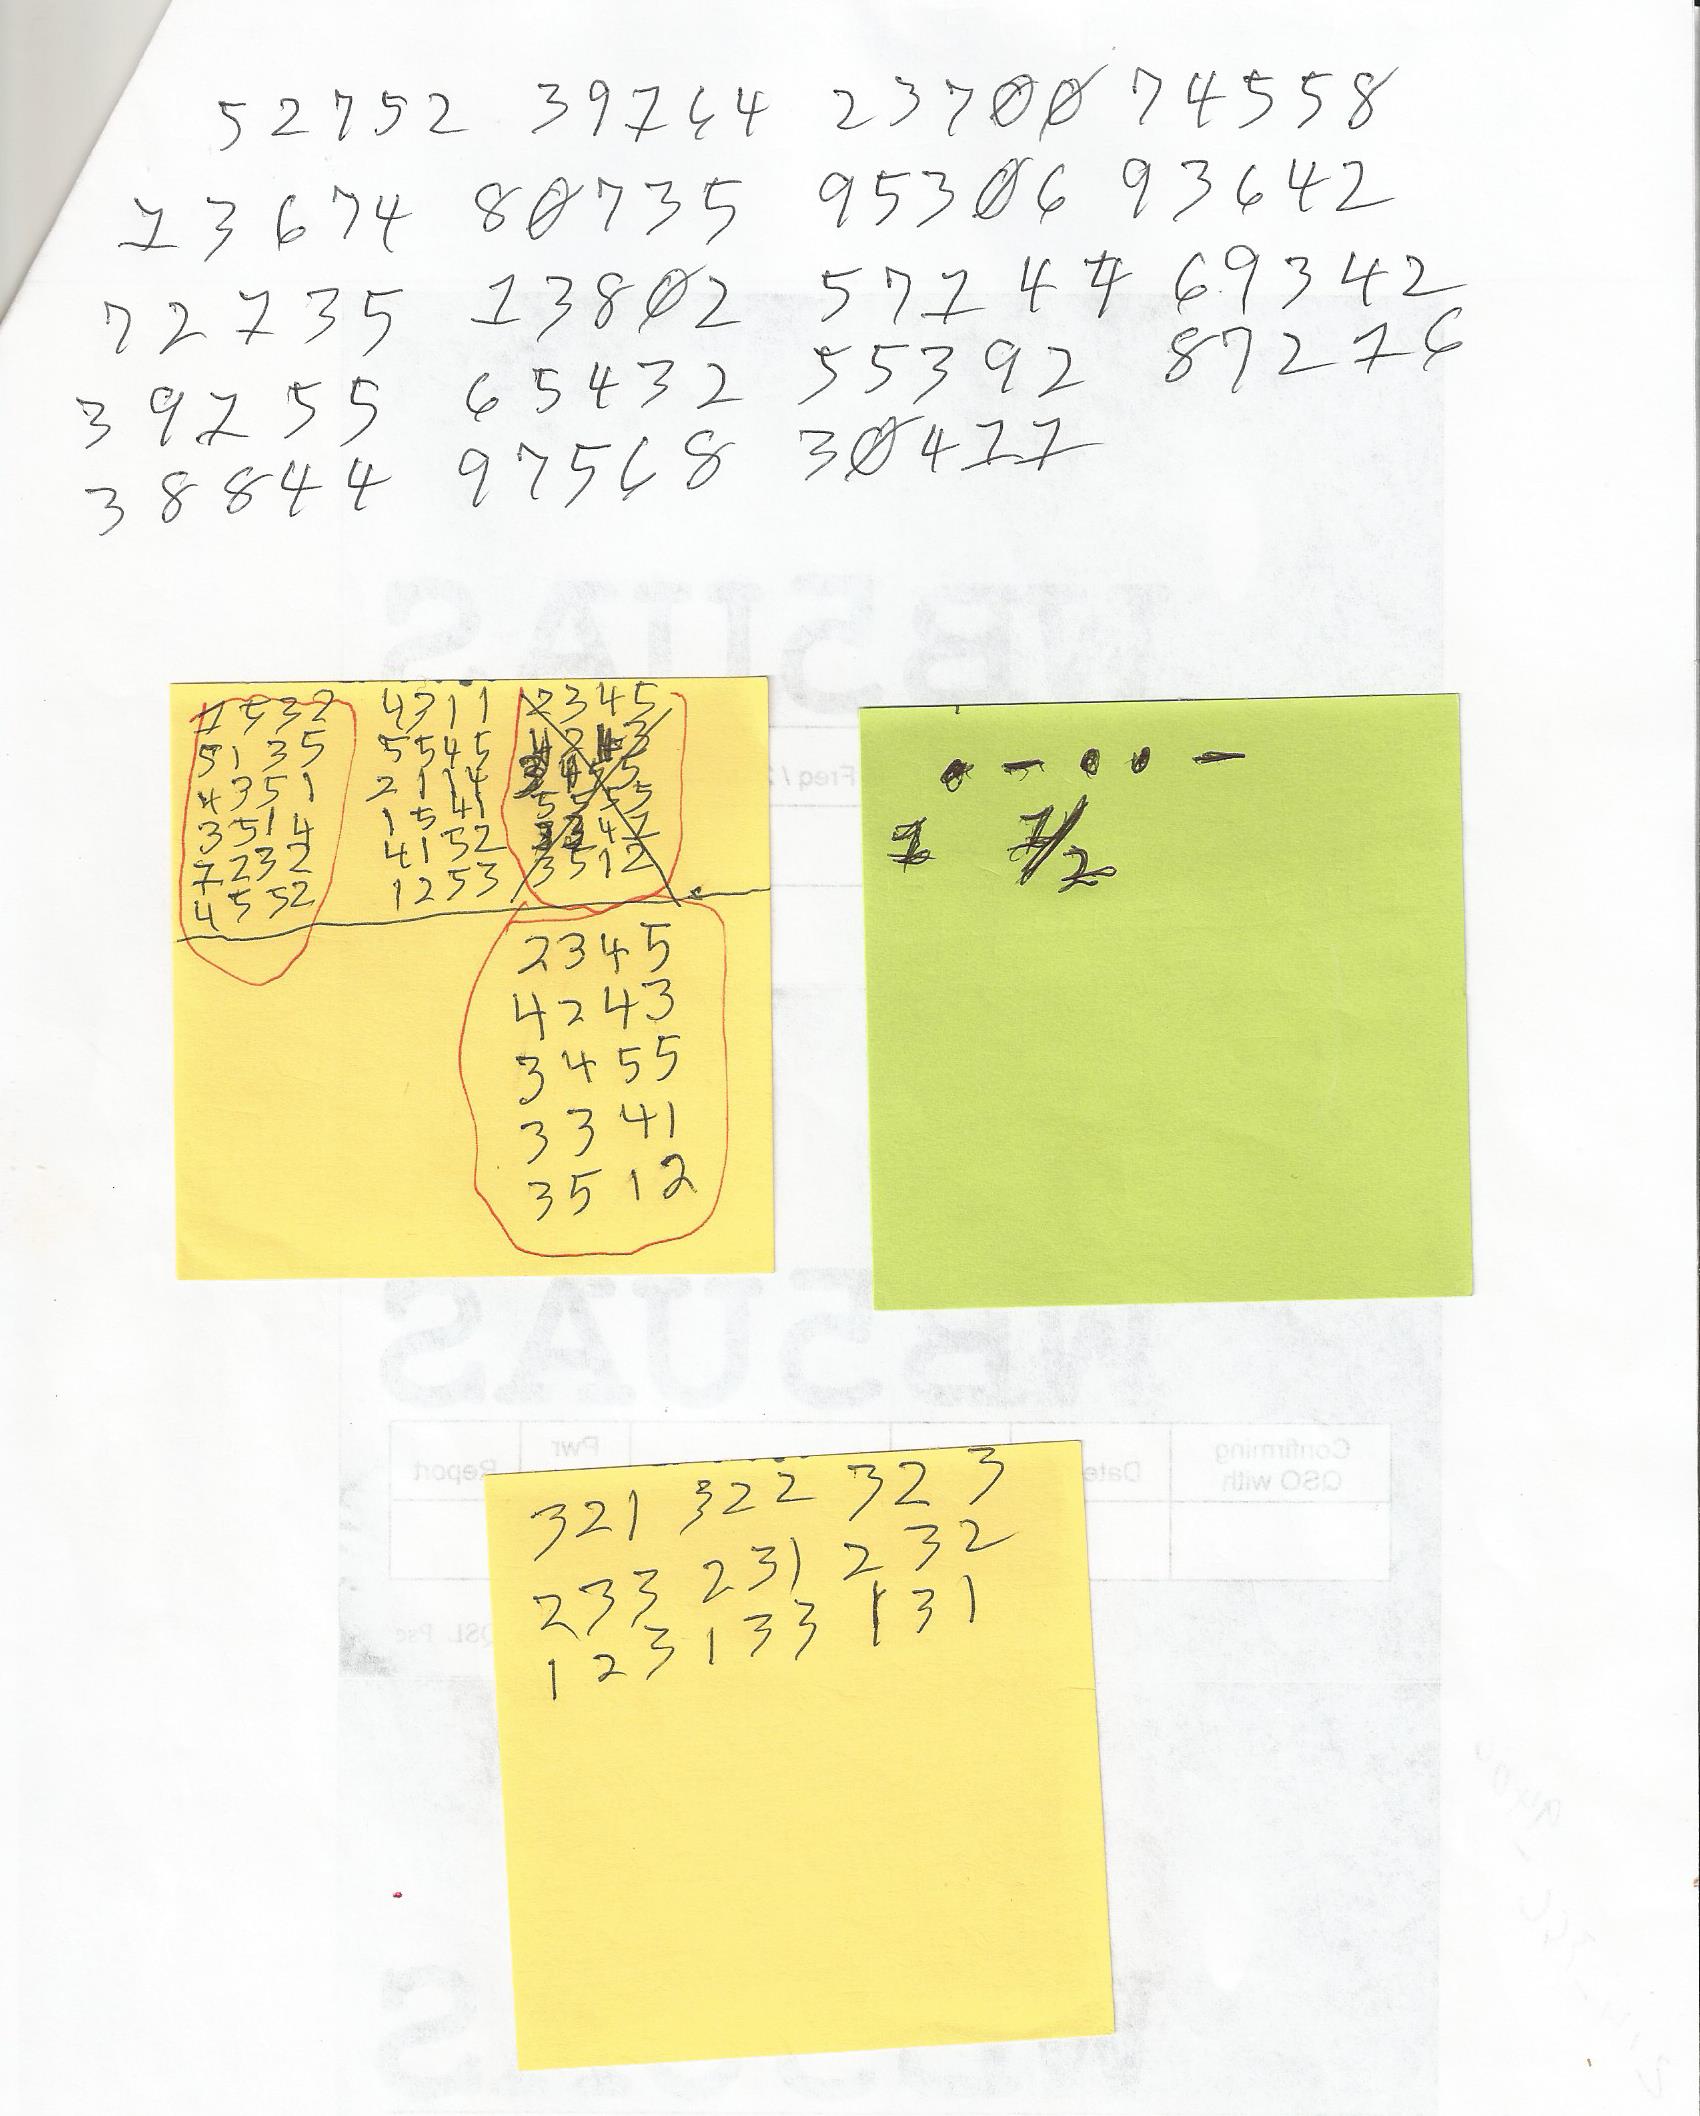 52752 39764 23700 74558
13674 80735 95306 93642
72735 13802 57144 69342
39155 65432 55392 87276
38844 97568 30411
1532 4311 2345
5135 5545 4243
4351 2114
3514 1541 5555
7232 4152
4552 1253 3512
2345
4243
3455
3341
3512
• – • • –
1 1/2
321 322 323
233 231 232
123 133 131
WB5UAS
Freq /
WB5UAS
Confirming QSO with
Date
Pwr
Report
QSL Pse